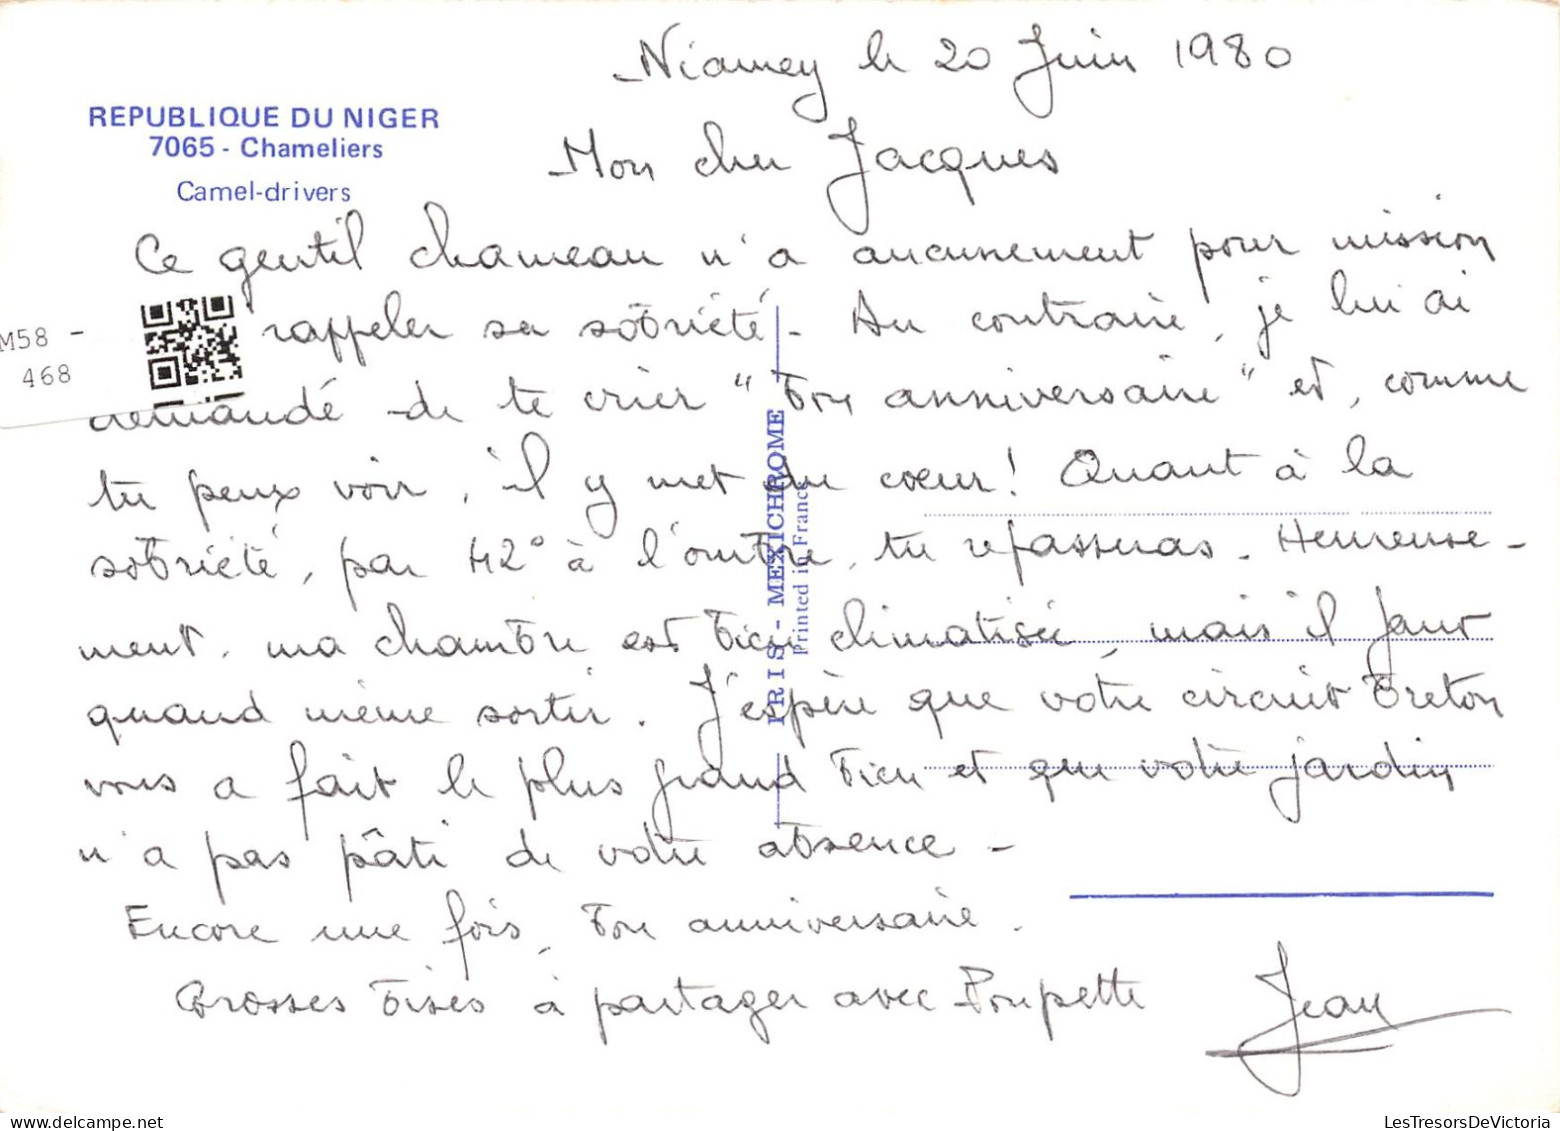 Niamey le 20 Juin 1980
REPUBLIQUE DU NIGER
7065 - Chameliers
Camel-drivers
Mon cher Jacques
Ce gentil chameau n'a aucunement pour mission
rappeler sa sobriété. Au contraire, je lui ai
demandé de te crier "Bon anniversaire" et, comme
tu peux voir, il y met du coeur! Quant à la
sobriété, par 42° à l'ombre, tu repasseras. Heureuse-
ment, ma chambre est bien climatisée, mais il faut
quand même sortir. J'espère que votre circuit breton
vous a fait le plus grand bien et que votre jardin
n'a pas pâti de votre absence -
Encore une fois, bon anniversaire.
Grosses bises à partager avec Poupette
Jean
M58 -
468
IRIS - MEXICHROME
Printed in France
LesTresorsDeVictoria